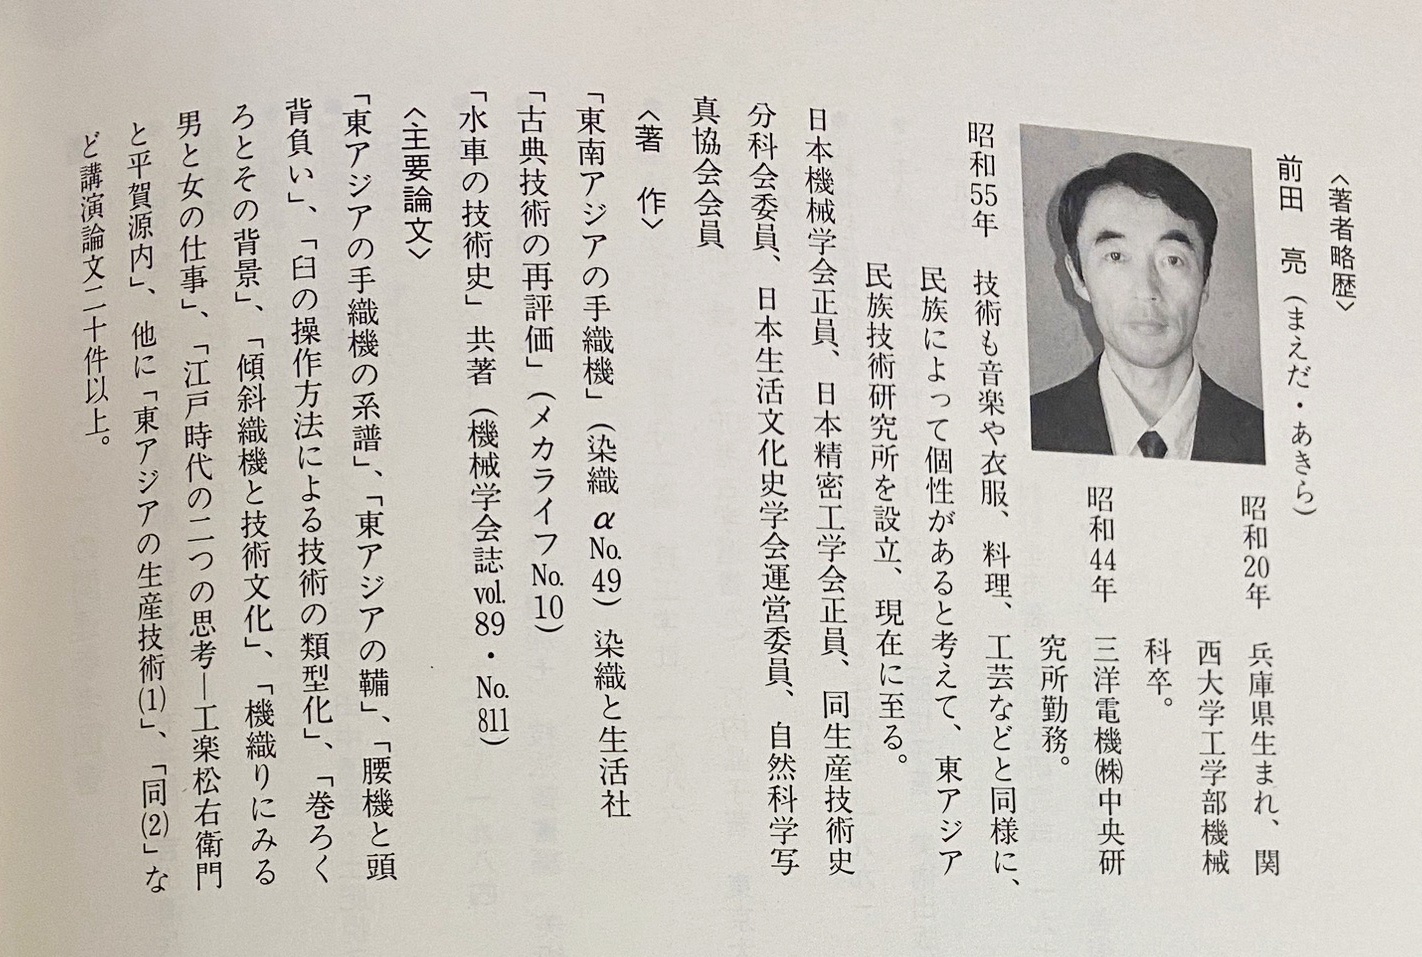 〈著者略歴〉
前田　亮（まえだ・あきら）
昭和20年　兵庫県生まれ、関
西大学工学部機械
科卒。
昭和44年　三洋電機㈱中央研
究所勤務。
昭和55年　技術も音楽や衣服、料理、工芸などと同様に、
民族によって個性があると考えて、東アジア
民族技術研究所を設立、現在に至る。
日本機械学会正員、日本精密工学会正員、同生産技術史
分科会委員、日本生活文化史学会運営委員、自然科学写
真協会会員
〈著　作〉
「東南アジアの手織機」（染織α No.49）染織と生活社
「古典技術の再評価」（メカライフNo.10）
「水車の技術史」共著（機械学会誌 vol.89・No.811）
〈主要論文〉
「東アジアの手織機の系譜」、「東アジアの鞴」、「腰機と頭
背負い」、「臼の操作方法による技術の類型化」、「巻ろく
ろとその背景」、「傾斜織機と技術文化」、「機織りにみる
男と女の仕事」、「江戸時代の二つの思考―工楽松右衛門
と平賀源内」、他に「東アジアの生産技術(1)」、「同(2)」な
ど講演論文二十件以上。